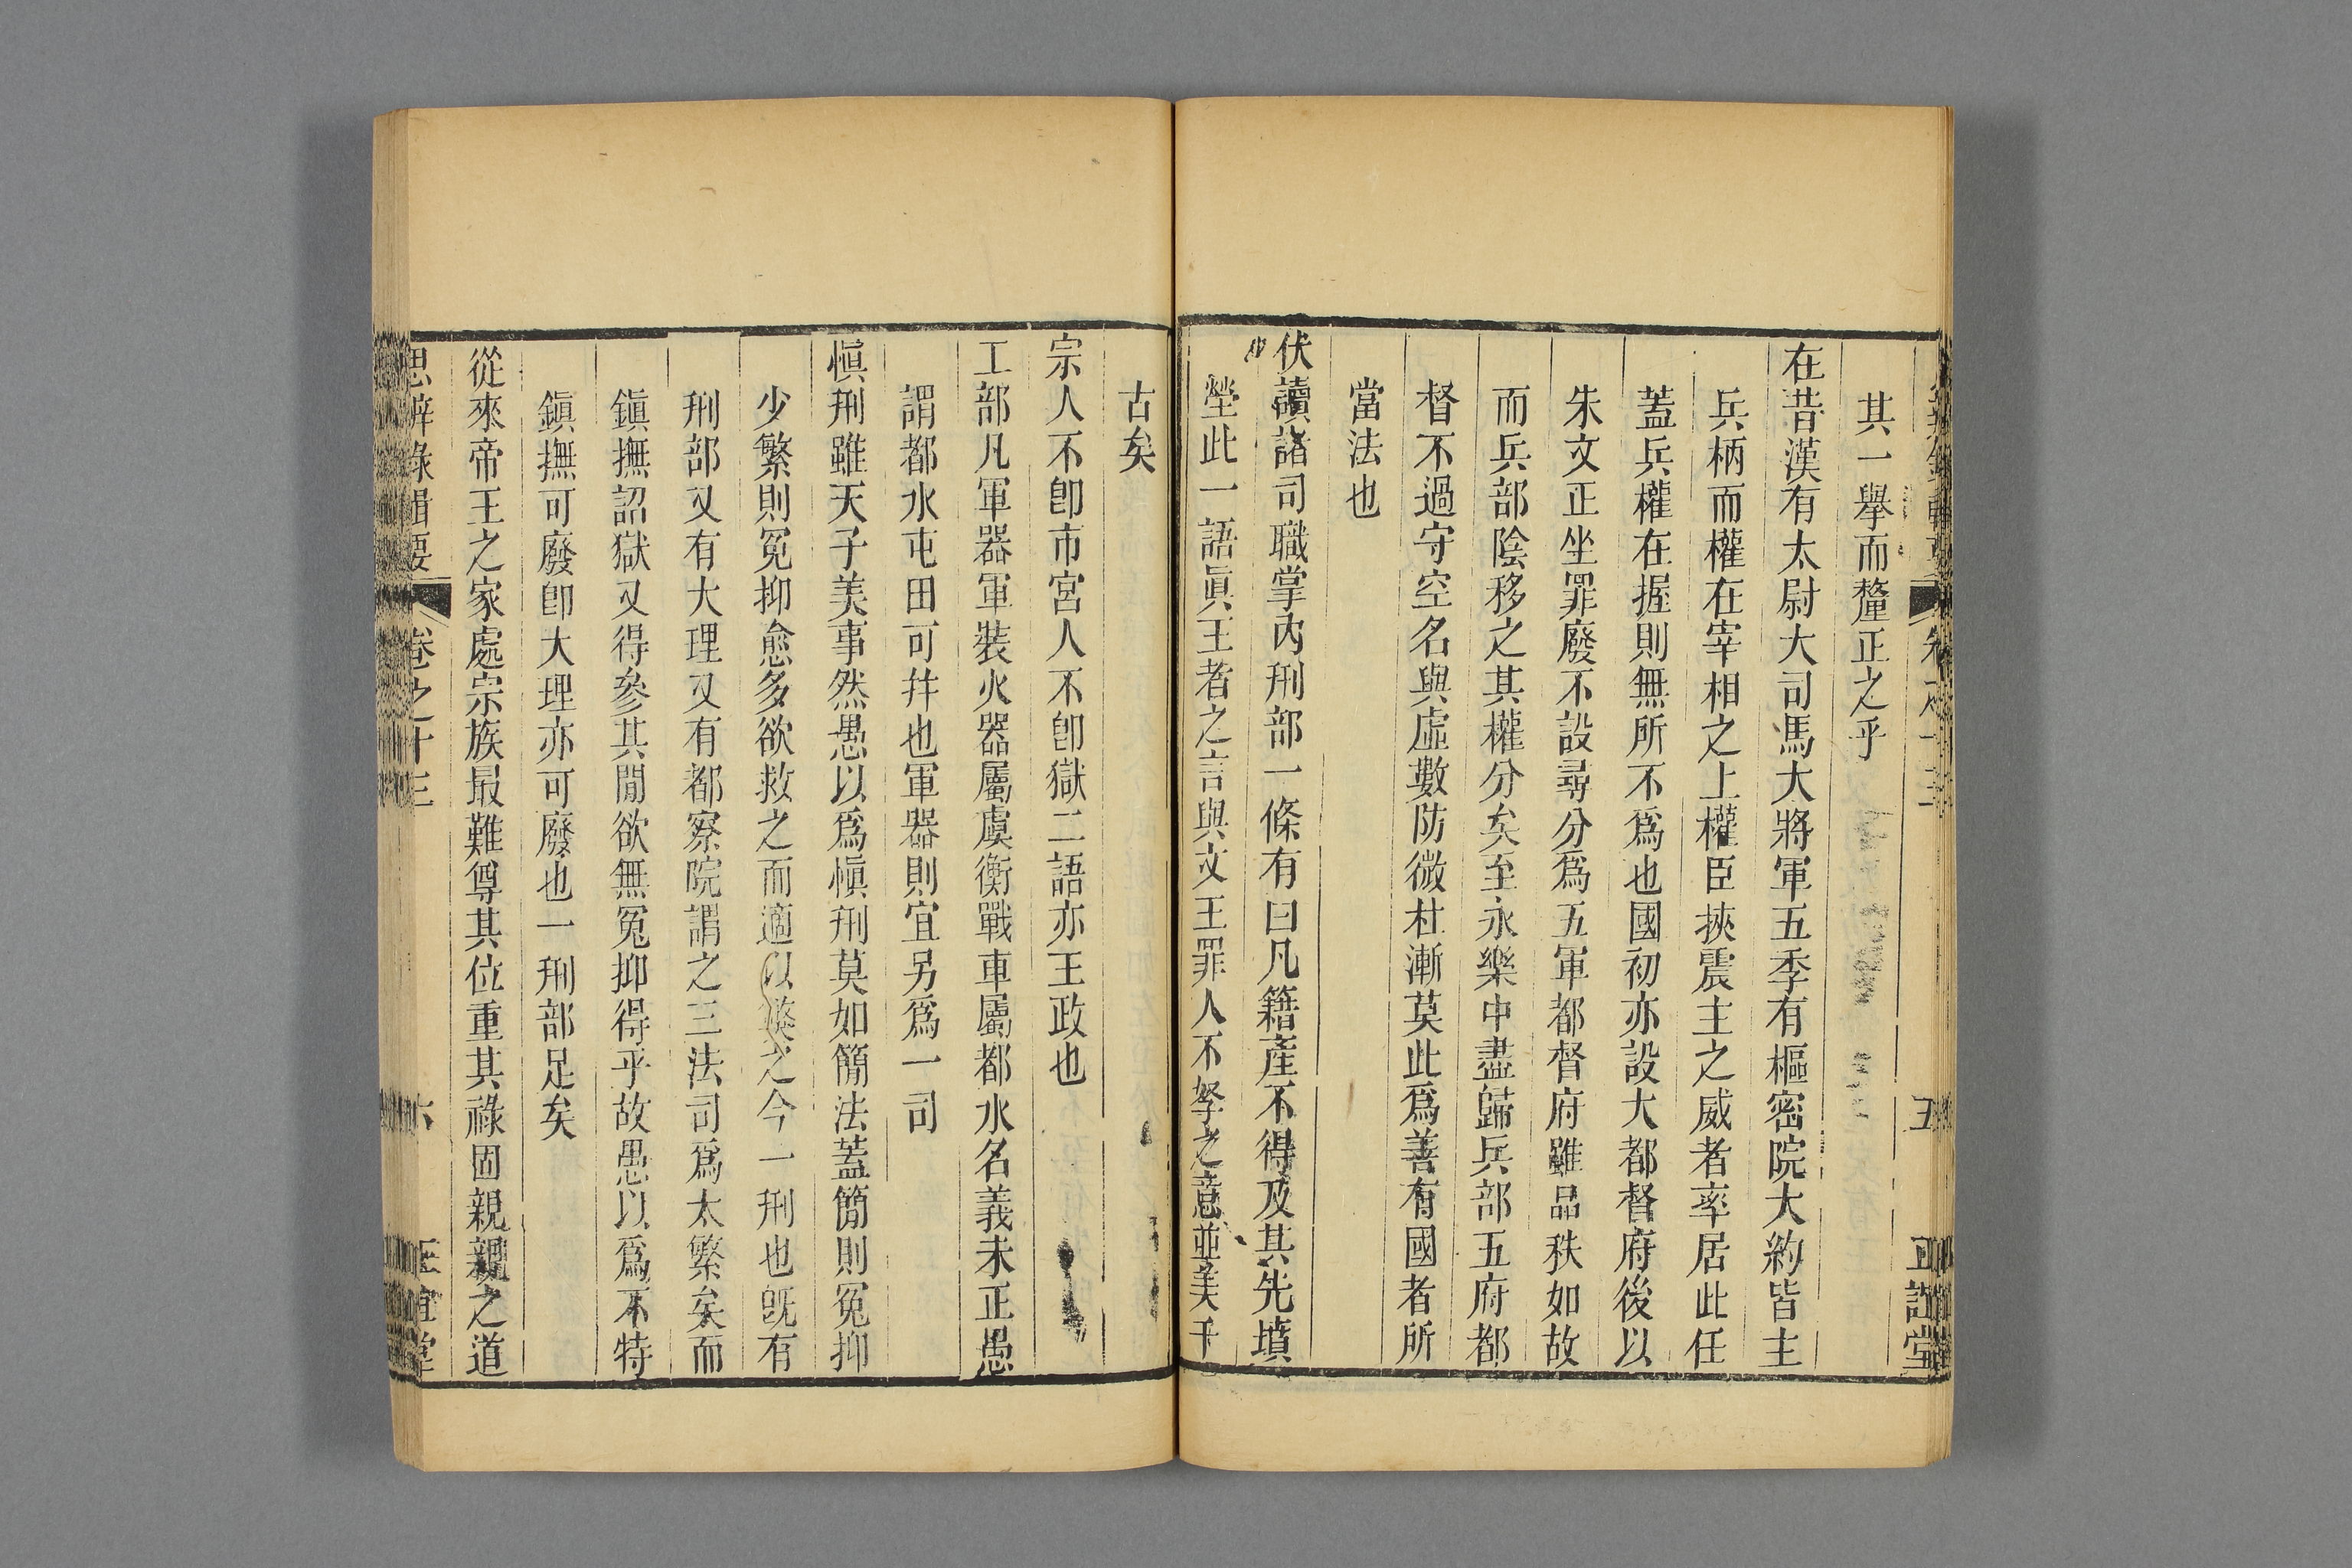 其一舉而釐正之乎
在昔漢有太尉大司馬大將軍五季有樞密院大約皆主
兵柄而權在宰相之上權臣挾震主之威者率居此任
蓋兵權在握則無所不爲也國初亦設大都督府後以
朱文正坐罪廢不設尋分爲五軍都督府雖品秩如故
而兵部陰移之其權分矣至永樂中盡歸兵部五府都
督不過守空名與虛數防微杜漸莫此爲善有國者所
當法也
伏讀諸司職掌內刑部一條有曰凡籍產不得及其先墳
塋此一語眞王者之言與文王罪人不孥之意並美千
古矣
宗人不卽市宮人不卽獄二語亦王政也
工部凡軍器軍裝火器屬虞衡戰車屬都水名義未正愚
謂都水屯田可幷也軍器則宜另爲一司
愼刑雖天子美事然愚以爲愼刑莫如簡法蓋簡則冤抑
少繁則冤抑愈多欲救之而適以滋之今一刑也旣有
刑部又有大理又有都察院謂之三法司爲太繁矣而
鎭撫詔獄又得參其閒欲無冤抑得乎故愚以爲不特
鎭撫可廢卽大理亦可廢也一刑部足矣
從來帝王之家處宗族最難尊其位重其祿固親親之道
思辨錄輯要
卷之十三
六
正誼堂